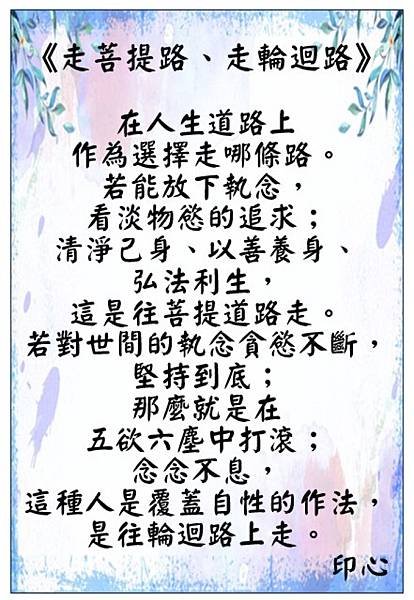 《走菩提路、走輪迴路》
在人生道路上
作為選擇走哪條路。
若能放下執念，
看淡物慾的追求；
清淨己身、以善養身、
弘法利生，
這是往菩提道路走。
若對世間的執念貪慾不斷，
堅持到底；
那麼就是在
五欲六塵中打滾；
念念不息，
這種人是覆蓋自性的作法，
是往輪迴路上走。
印心